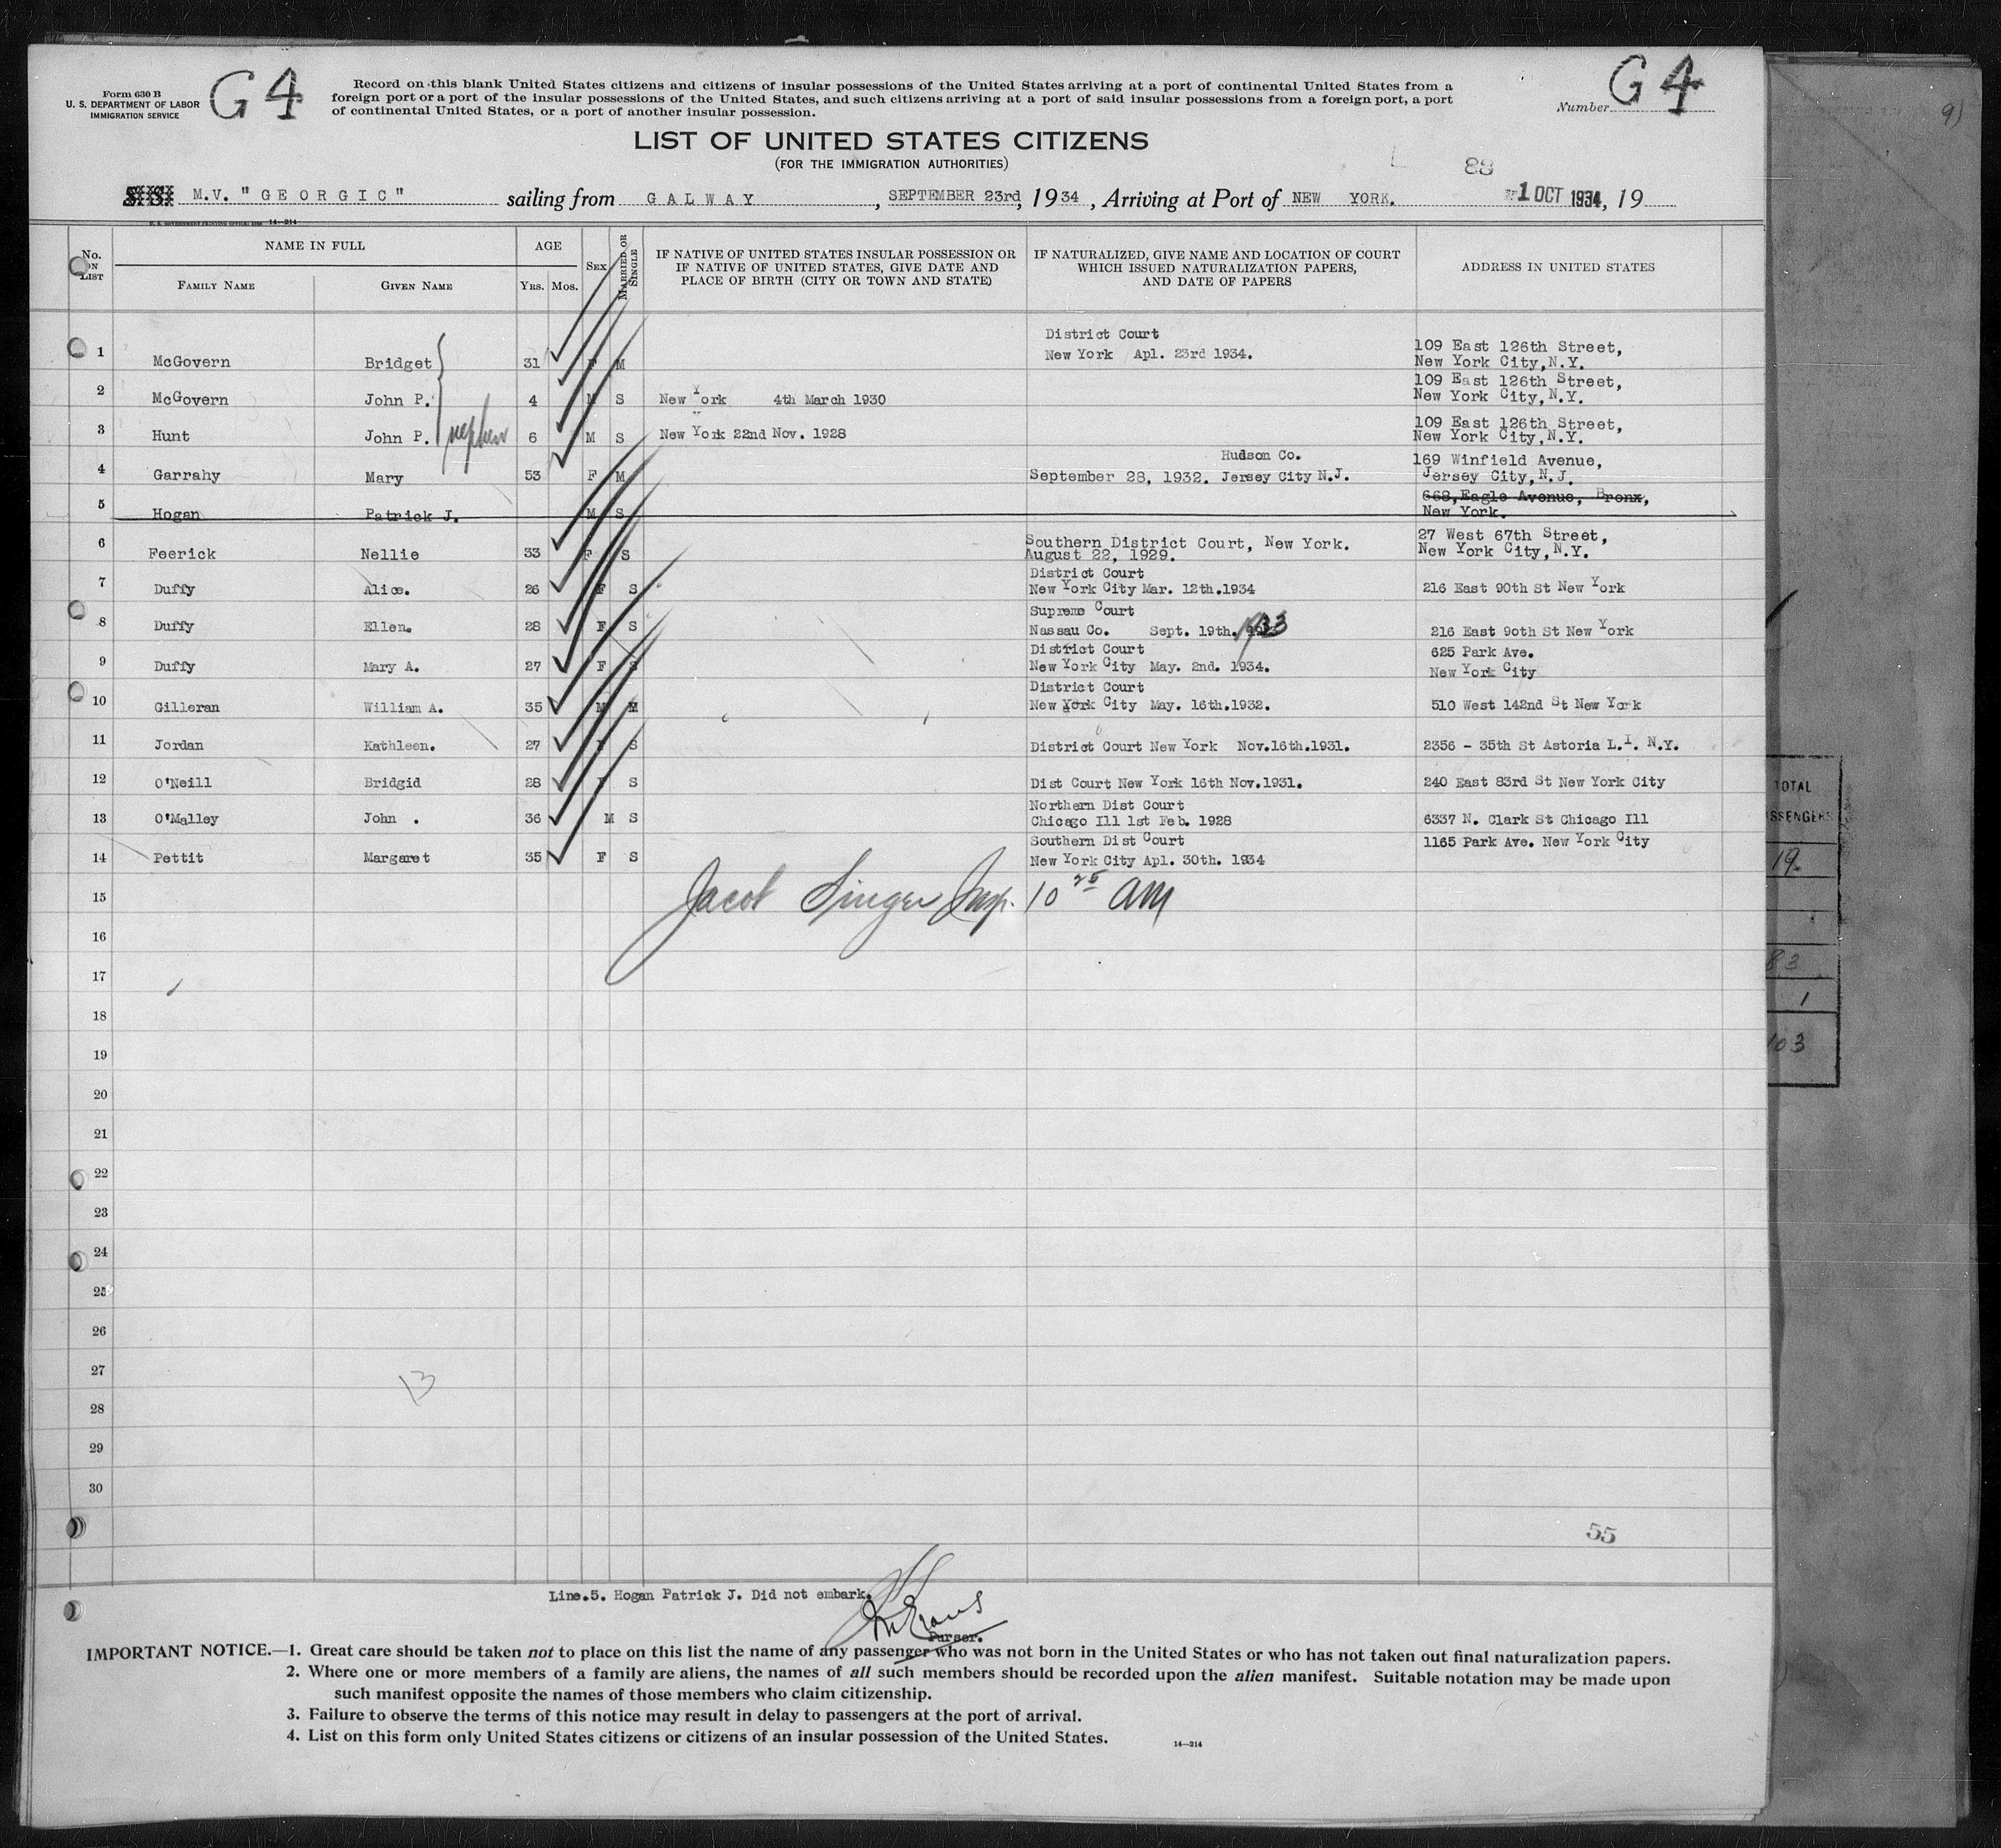 Form 630 B
U. S. DEPARTMENT OF LABOR
IMMIGRATION SERVICE
G 4
Record on this blank United States citizens and citizens of insular possessions of the United States arriving at a port of continental United States from a
foreign port or a port of the insular possessions of the United States, and such citizens arriving at a port of said insular possessions from a foreign port, a port
of continental United States, or a port of another insular possession.
Number G 4
LIST OF UNITED STATES CITIZENS
(FOR THE IMMIGRATION AUTHORITIES)
88
S.S. M.V. "GEORGIC" sailing from GALWAY, SEPTEMBER 23rd, 1934, Arriving at Port of NEW YORK. 1 OCT 1934, 19
14—214
No. ON LIST NAME IN FULL AGE SEX MARRIED OR SINGLE IF NATIVE OF UNITED STATES INSULAR POSSESSION OR IF NATIVE OF UNITED STATES, GIVE DATE AND PLACE OF BIRTH (CITY OR TOWN AND STATE) IF NATURALIZED, GIVE NAME AND LOCATION OF COURT WHICH ISSUED NATURALIZATION PAPERS, AND DATE OF PAPERS ADDRESS IN UNITED STATES
FAMILY NAME GIVEN NAME YRS. MOS.
1 McGovern Bridget 31 F M District Court New York Apl. 23rd 1934. 109 East 126th Street, New York City, N.Y.
2 McGovern John P. 4 M S New York 4th March 1930 109 East 126th Street, New York City, N.Y.
3 Hunt John P. nephew 6 M S New York 22nd Nov. 1928 109 East 126th Street, New York City, N.Y.
4 Garrahy Mary 53 F M September 28, 1932. Hudson Co. Jersey City N.J. 169 Winfield Avenue, Jersey City, N.J.
5 Hogan Patrick J. M S 668, Eagle Avenue, Bronx, New York.
6 Feerick Nellie 33 F S Southern District Court, New York. August 22, 1929. 27 West 67th Street, New York City, N.Y.
7 Duffy Alice. 26 F S District Court New York City Mar. 12th. 1934 216 East 90th St New York
8 Duffy Ellen. 28 F S Supreme Court Nassau Co. Sept. 19th. 1933 216 East 90th St New York
9 Duffy Mary A. 27 F S District Court New York City May. 2nd. 1934. 625 Park Ave. New York City
10 Gilleran William A. 35 M M District Court New York City May. 16th. 1932. 510 West 142nd St New York
11 Jordan Kathleen. 27 F S District Court New York Nov. 16th. 1931. 2356 - 35th St Astoria L.I. N.Y.
12 O'Neill Bridgid 28 F S Dist Court New York 16th Nov. 1931. 240 East 83rd St New York City
13 O'Malley John . 36 M S Northern Dist Court Chicago Ill 1st Feb. 1928 6337 N. Clark St Chicago Ill
14 Pettit Margaret 35 F S Southern Dist Court New York City Apl. 30th. 1934 1165 Park Ave. New York City
15 Jacob Singer Insp. 10 25 AM
16
17
18
19
20
21
22
23
24
25
26
27
13
28
29
30
55
Line.5. Hogan Patrick J. Did not embark.
Evans
Purser.
IMPORTANT NOTICE.—1. Great care should be taken not to place on this list the name of any passenger who was not born in the United States or who has not taken out final naturalization papers.
2. Where one or more members of a family are aliens, the names of all such members should be recorded upon the alien manifest. Suitable notation may be made upon
such manifest opposite the names of those members who claim citizenship.
3. Failure to observe the terms of this notice may result in delay to passengers at the port of arrival.
4. List on this form only United States citizens or citizens of an insular possession of the United States.
14—214
TOTAL
19
83
1
103